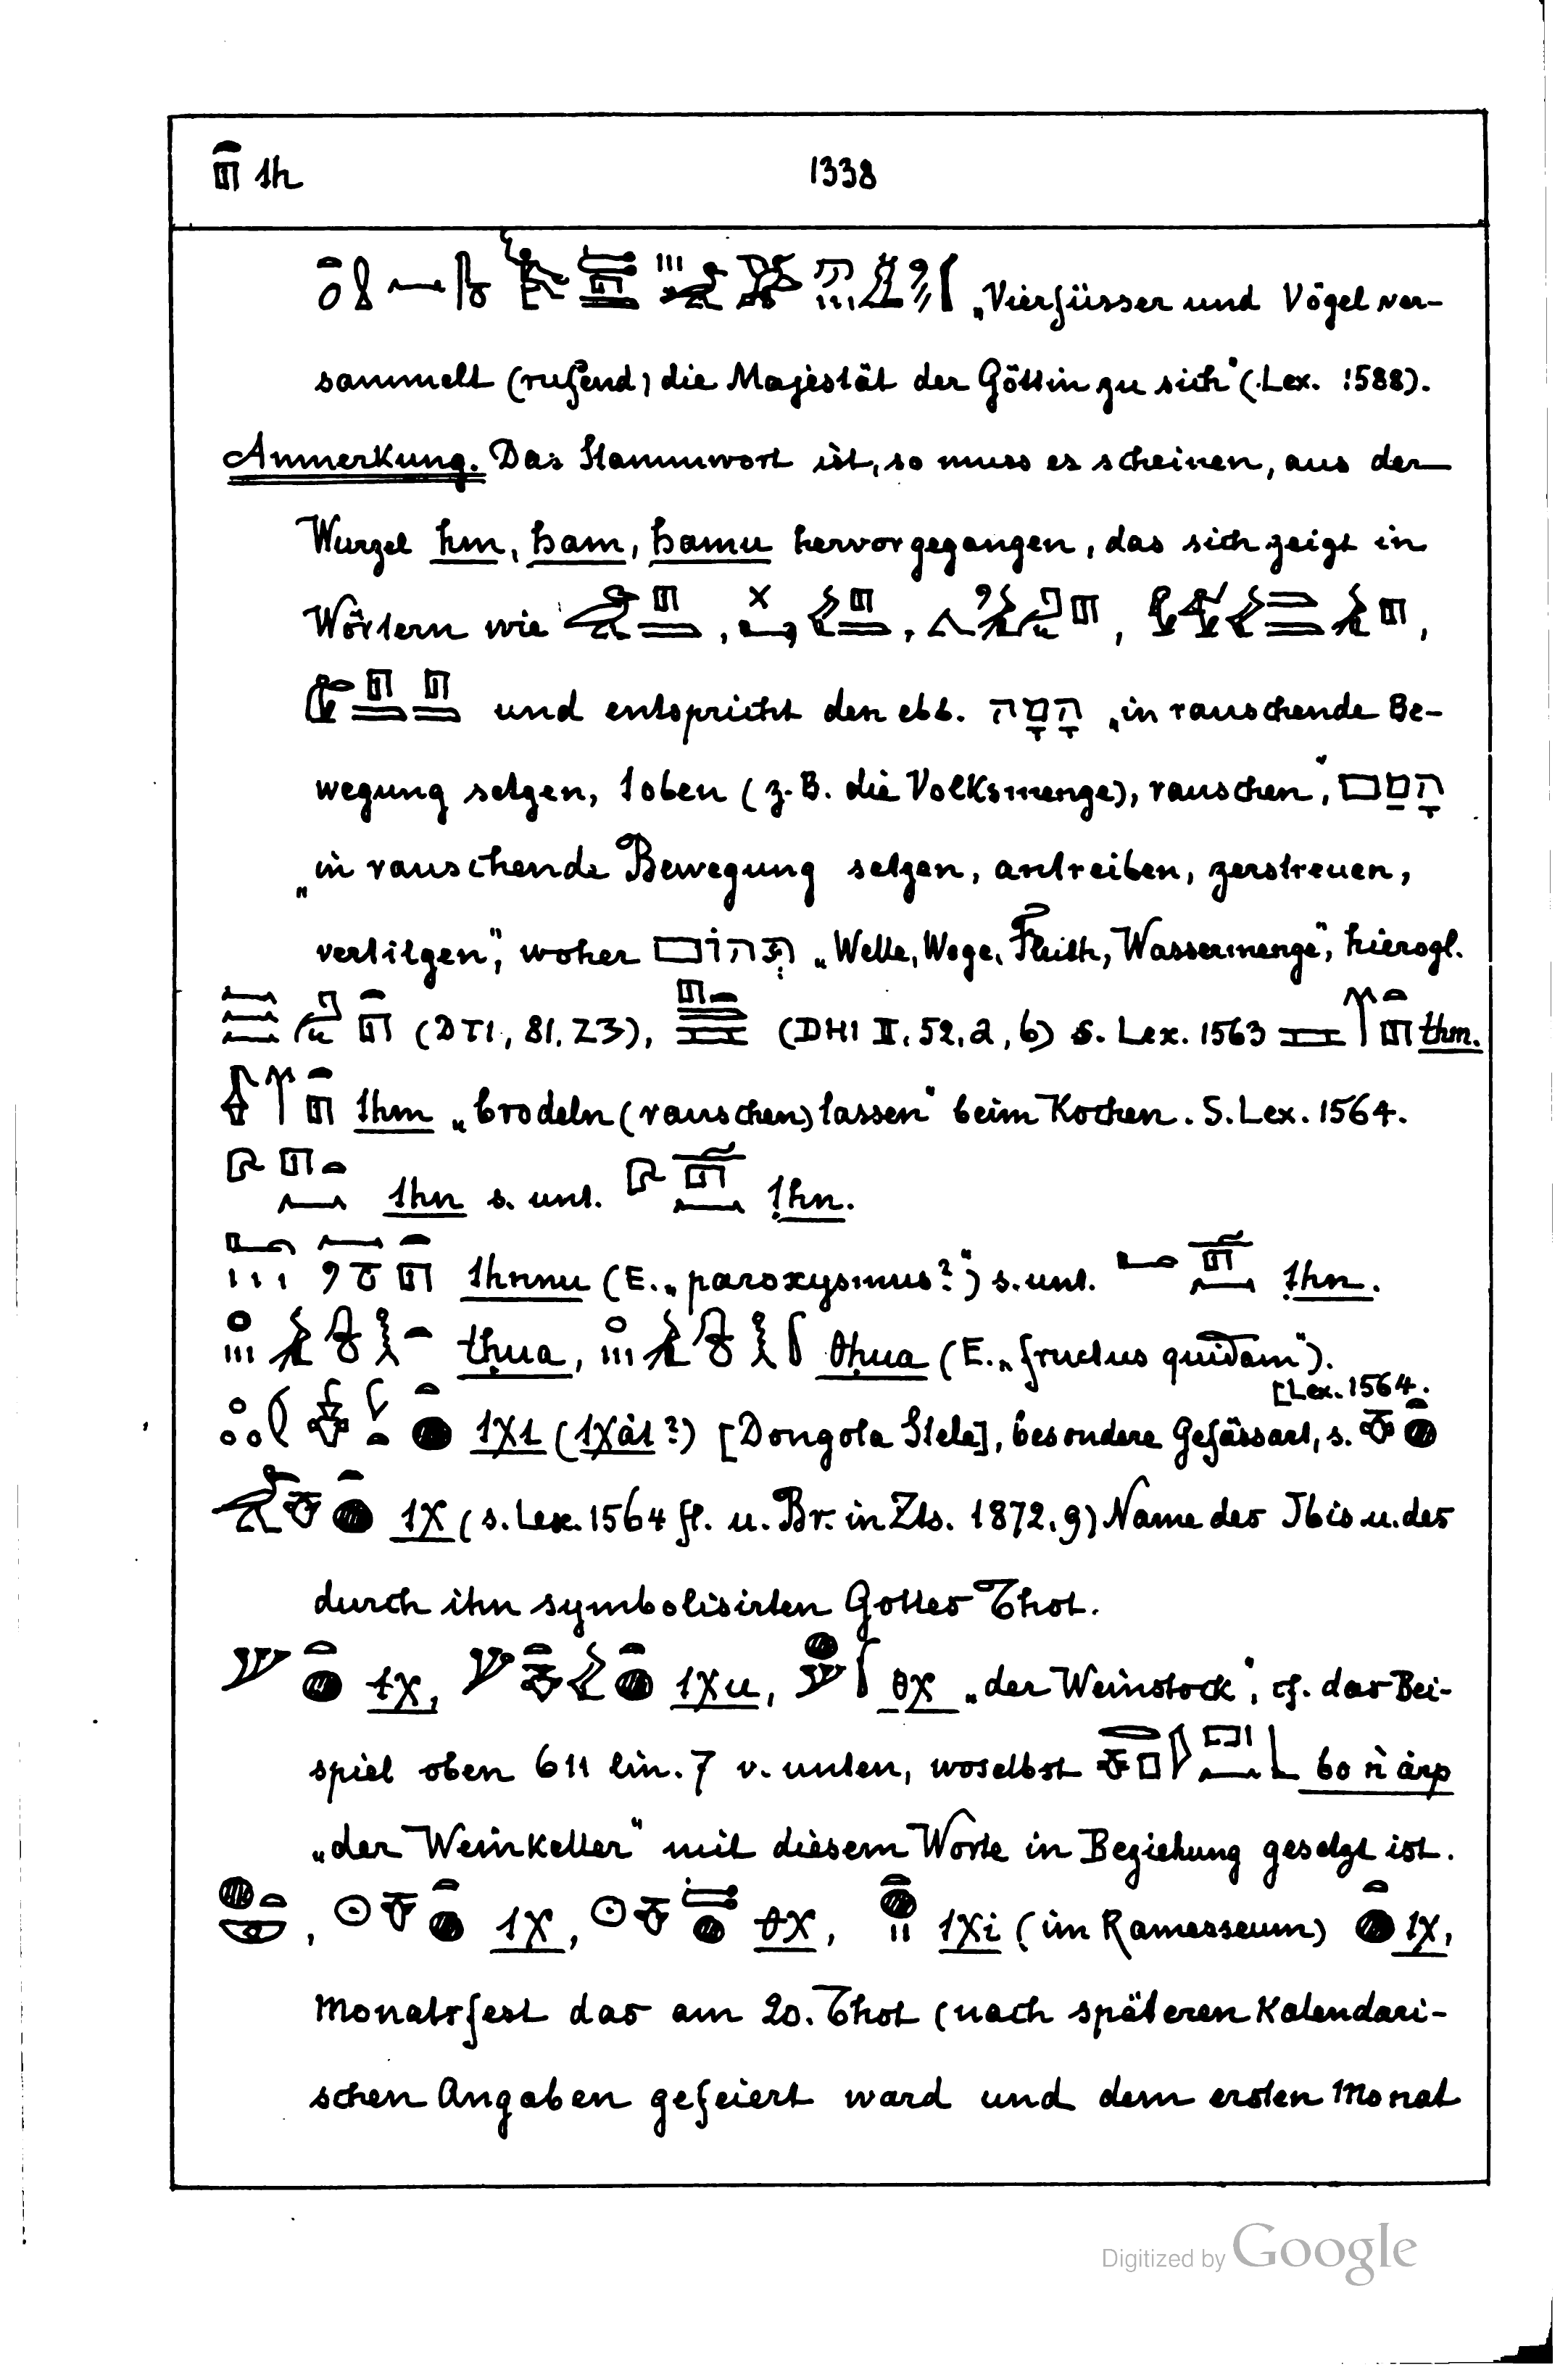 th 1338
„Vierfüsser und Vögel ver-
sammelt (rufend) die Majestät der Göttin zu sich“ (Lex. 1588).
Anmerkung. Das Stammwort ist, so muss es scheinen, aus der
Wurzel hm, ham, hamu hervorgegangen, das sich zeigt in
Wörtern wie , , , ,
und entspricht den ebr. הָמָה „in rauschende Be-
wegung setzen, toben (z.B. die Volksmenge), rauschen“, הָמַם
„in rauschende Bewegung setzen, antreiben, zerstreuen,
vertilgen“, woher תְּהוֹם „Welle, Woge, Fluth, Wassermenge“, hierogl.
(DTI, 81, Z3), (DHI II, 52, a, b) s. Lex. 1563 thm.
thm „brodeln (rauschen) lassen“ beim Kochen. S. Lex. 1564.
thn s. unt. ṭhn.
thnnu (E. „paroxysmus?“) s. unt. ṭhn.
tḥua, θḥua (E. „fructus quidam“).
[Lex. 1564.
tχt (tχȧt?) [Dongola Stele], besondere Gefässart, s.
tχ (s. Lex. 1564 fl. u. Br. in Zts. 1872, 9) Name des Ibis u. des
durch ihn symbolisirten Gottes Thot.
tχ, tχu, θχ „der Weinstock“, cf. das Bei-
spiel oben 611 lin. 7 v. unten, woselbst bo n ȧrp
„der Weinkeller“ mit diesem Worte in Beziehung gesetzt ist.
, tχ, θχ, tχi (im Ramesseum) tχ,
Monatsfest das am 20. Thot (nach späteren Kalendari-
schen Angaben gefeiert ward und dem ersten Monat
Digitized by Google